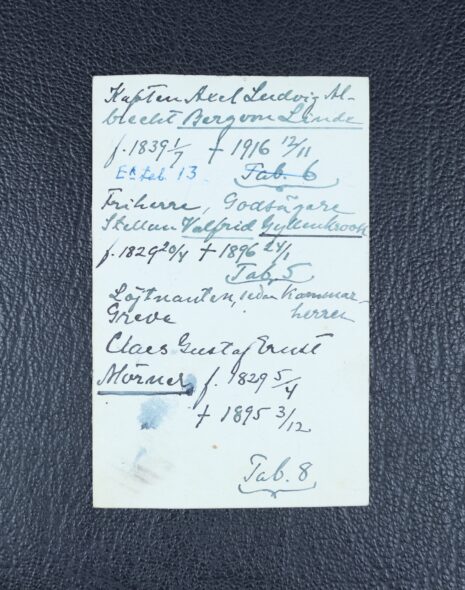 Kapten Axel Ludvig Al-
brecht Berg von Linde
f. 1839 1/7 † 1916 12/11
Tab. 6
Friherre, Godsägare
Stellan Valfrid Gyllenkrook
f. 1829 20/4 † 1896 24/1
Tab. 5
Löjtnanten, sedan Kammar-
Greve herren
Claes Gustaf Ernst
Mörner f. 1829 5/4
† 1895 3/12
Tab. 8